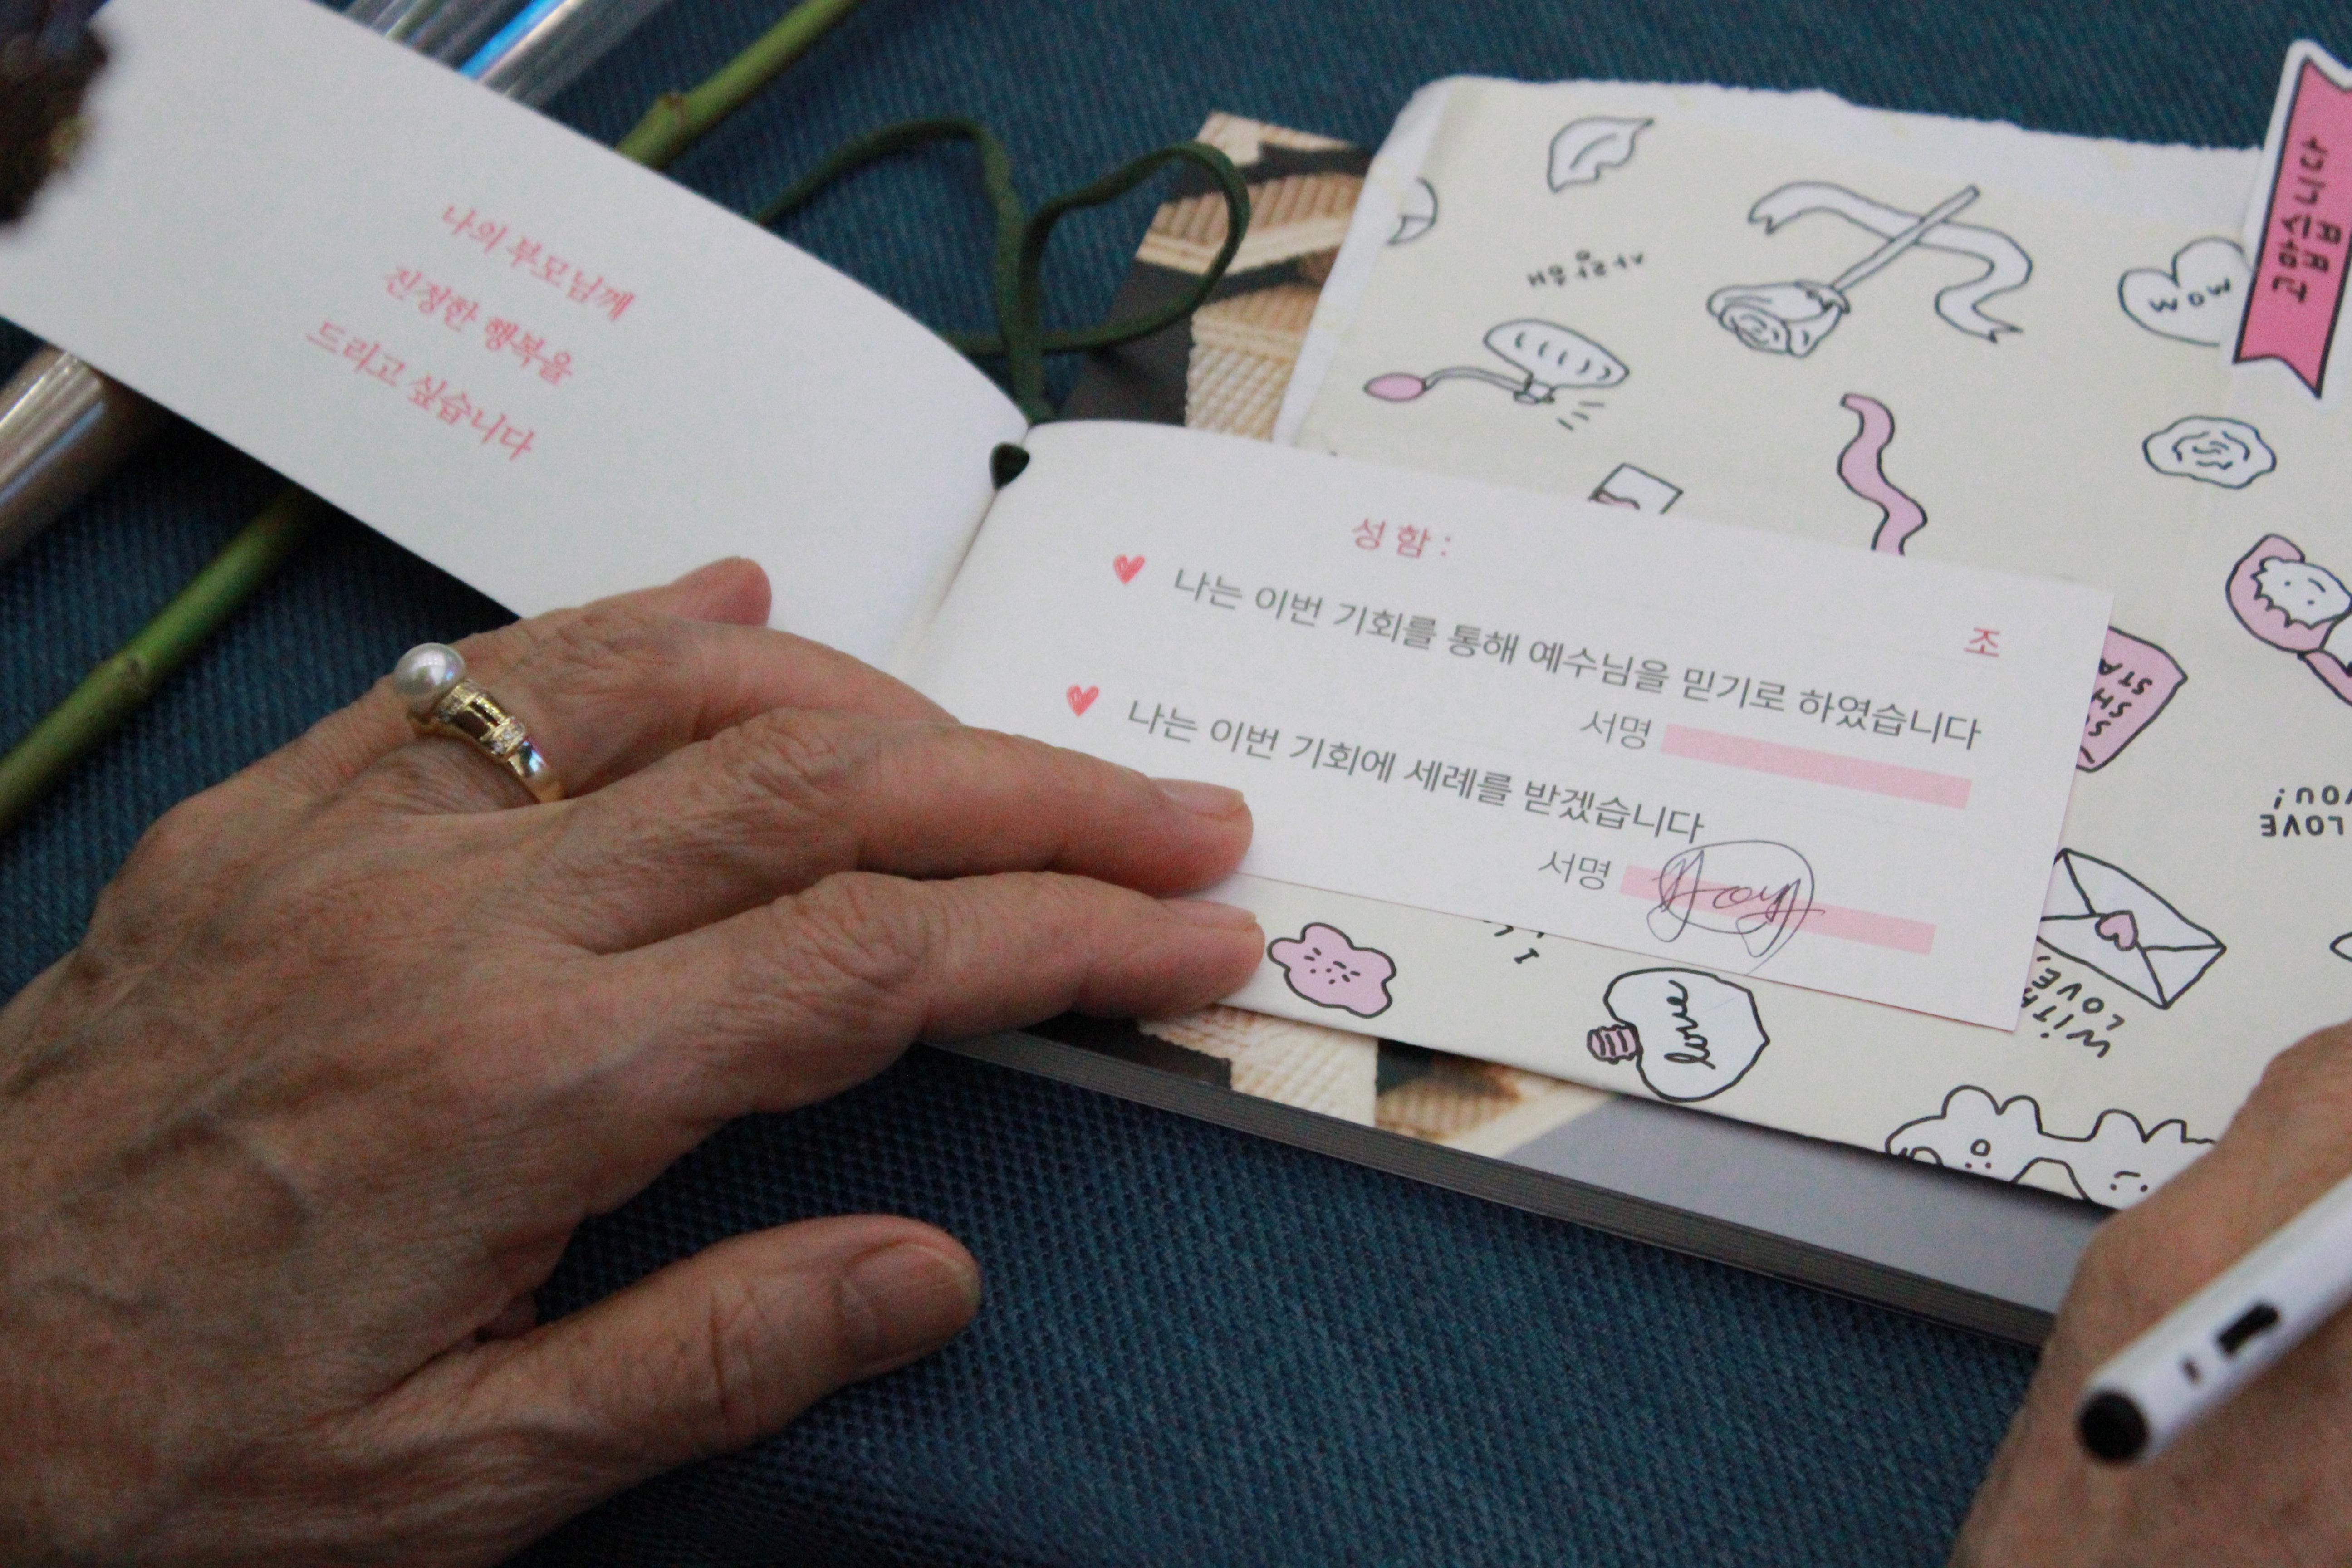 나의 부모님께
진정한 행복을
드리고 싶습니다
성함 :
조
나는 이번 기회를 통해 예수님을 믿기로 하였습니다
서명
나는 이번 기회에 세례를 받겠습니다
서명 Joy
사랑해
WOW
LOVE
YOU!
WITH
LOVE,
love